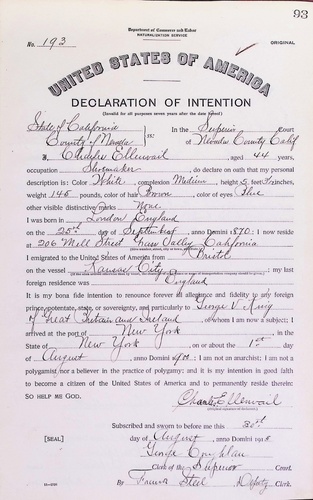 93
Department of Commerce and Labor
NATURALIZATION SERVICE
No. 193
ORIGINAL
UNITED STATES OF AMERICA
DECLARATION OF INTENTION
(Invalid for all purposes seven years after the date hereof)
State of California
County of Nevada
ss:
In the Superior Court
of Nevada County Calif
I, Charles Ellenvail, aged 44 years,
occupation Shoemaker, do declare on oath that my personal
description is: Color White, complexion Medium, height 5 feet inches,
weight 145 pounds, color of hair Brown, color of eyes Blue
other visible distinctive marks None
I was born in London England
on the 25th day of September, anno Domini 1870; I now reside
at 206 Mill Street Grass Valley, California
I emigrated to the United States of America from Bristol
on the vessel Kansas City; my last
foreign residence was England
It is my bona fide intention to renounce forever all allegiance and fidelity to any foreign
prince, potentate, state, or sovereignty, and particularly to George V. King
of Great Britain and Ireland, of whom I am now a subject; I
arrived at the port of New York, in the
State of New York, on or about the 1st day
of August, anno Domini; I am not an anarchist; I am not a
polygamist nor a believer in the practice of polygamy; and it is my intention in good faith
to become a citizen of the United States of America and to permanently reside therein:
SO HELP ME GOD.
Charles Ellenvail
(Original signature of declarant)
Subscribed and sworn to before me this 30th
[SEAL]
day of August, anno Domini 1915
George
Clerk of the Superior Court.
By Steel, Deputy Clerk.